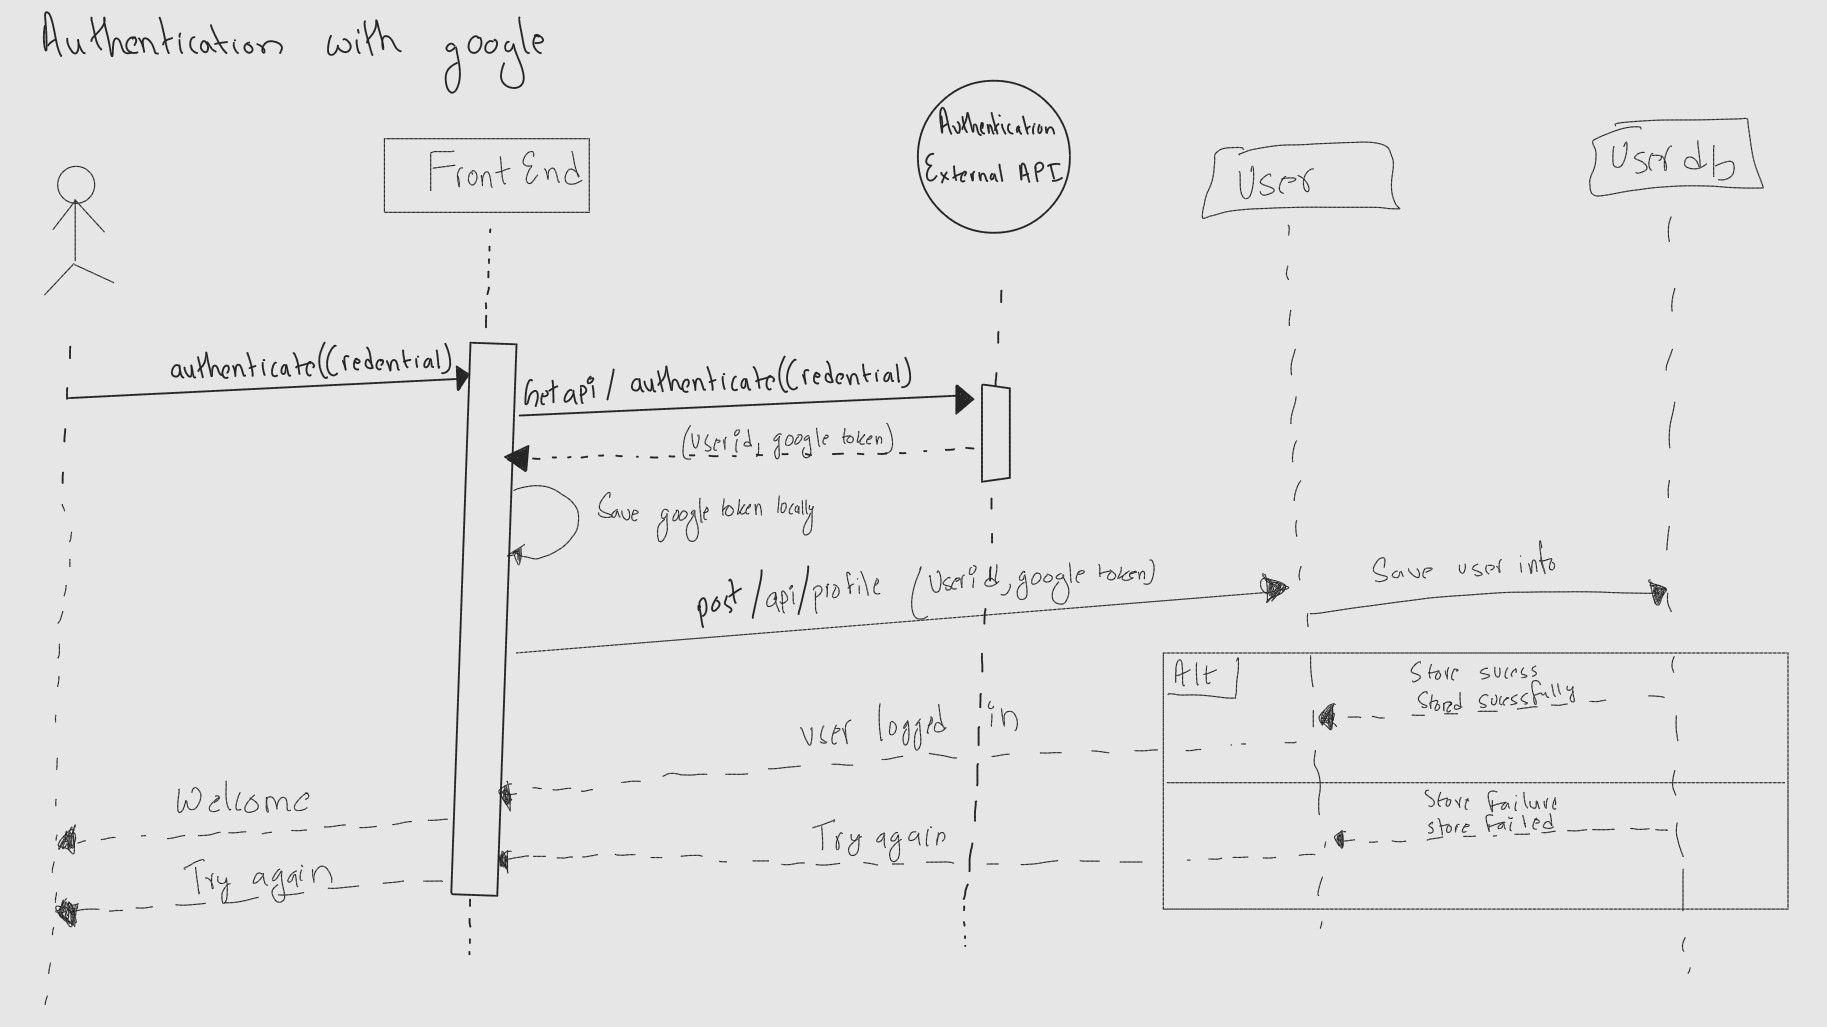 Authentication with google
Front End
Authentication
External API
User
User db
authenticate(Credential)
Get api / authenticate(Credential)
(user id, google token)
Save google token locally
post /api/profile (User id, google token)
Save user into
Alt
Store sucess
Stored sucessfully
user logged in
Welcome
Store Failure
store Failed
Try again
Try again